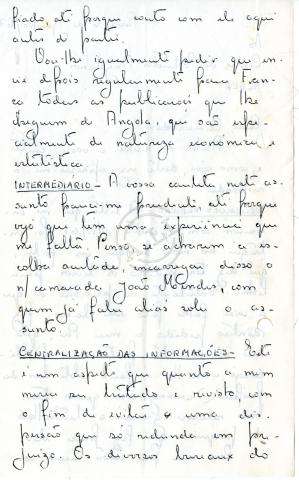 fiado, até porque conto com ele aqui
antes de partir.
Vou-lhe igualmente pedir que en-
vie depois regularmente para Fran-
ça todas as publicações que lhe
cheguem de Angola, que são espe-
cialmente de natureza económica e
estatística.
INTERMEDIÁRIO - A vossa cautela neste as-
sunto parece-me prudente, até porque
vejo que tem uma experiência que
me falta. Penso, se acharem a es-
colha acertada, encarregar disso o
n/ camarada João Mendes, com
quem já falei aliás sobre o as-
sunto.
CENTRALIZAÇÃO DAS INFORMAÇÕES - Este
é um aspecto que quanto a mim
merece ser tratado e revisto, com
o fim de evitar uma dis-
persão que só redunda em pre-
juízo. Os diversos bureaux do